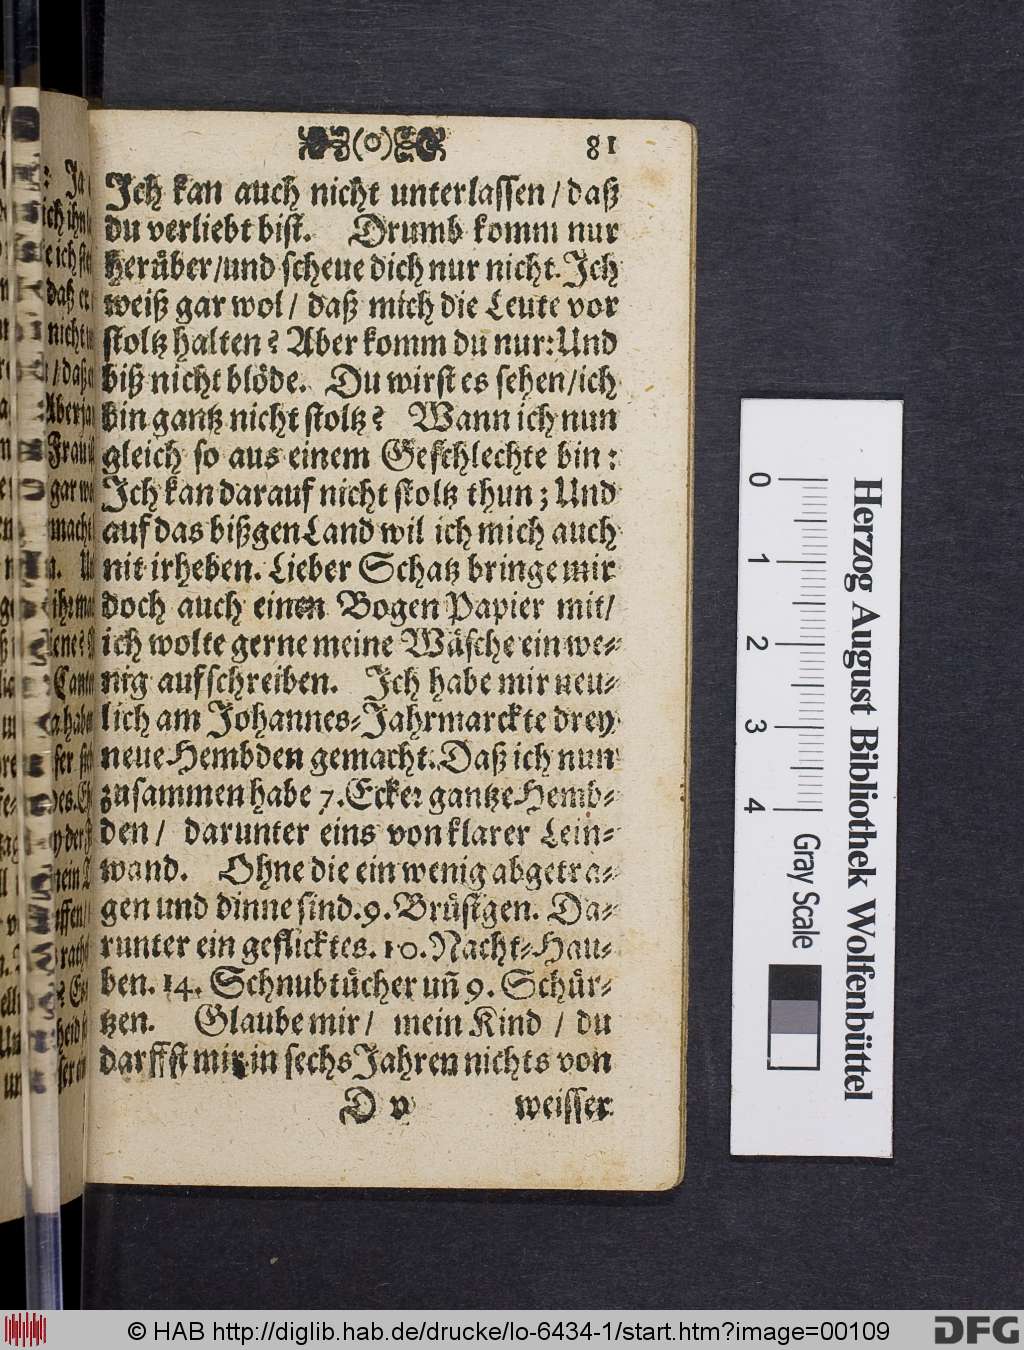 (o) 81
Ich kan auch nicht unterlassen / daß
du verliebt bist. Drumb komm nur
herüber/und scheue dich nur nicht. Ich
weiß gar wol / daß mich die Leute vor
stoltz halten? Aber komm du nur: Und
biß nicht blöde. Du wirst es sehen/ich
bin gantz nicht stoltz? Wann ich nun
gleich so aus einem Geschlechte bin:
Ich kan darauf nicht stoltz thun; Und
auf das bißgen Land wil ich mich auch
nit irheben. Lieber Schatz bringe mir
doch auch einen Bogen Papier mit/
ich wolte gerne meine Wäsche ein we-
nig aufschreiben. Ich habe mir neu-
lich am Johannes-Jahrmarckte drey
neue Hembden gemacht. Daß ich nun
zusammen habe 7. Ecker gantze Hemb-
den / darunter eins von klarer Lein-
wand. Ohne die ein wenig abgetra-
gen und dinne sind. 9. Brüstgen. Da-
runter ein geflicktes. 10. Nacht-Hau-
ben. 14. Schnubtücher uñ 9. Schür-
tzen. Glaube mir / mein Kind / du
darffst mir in sechs Jahren nichts von
D v weisser
Herzog August Bibliothek Wolfenbüttel
0 1 2 3 4 Gray Scale
© HAB http://diglib.hab.de/drucke/lo-6434-1/start.htm?image=00109
DFG